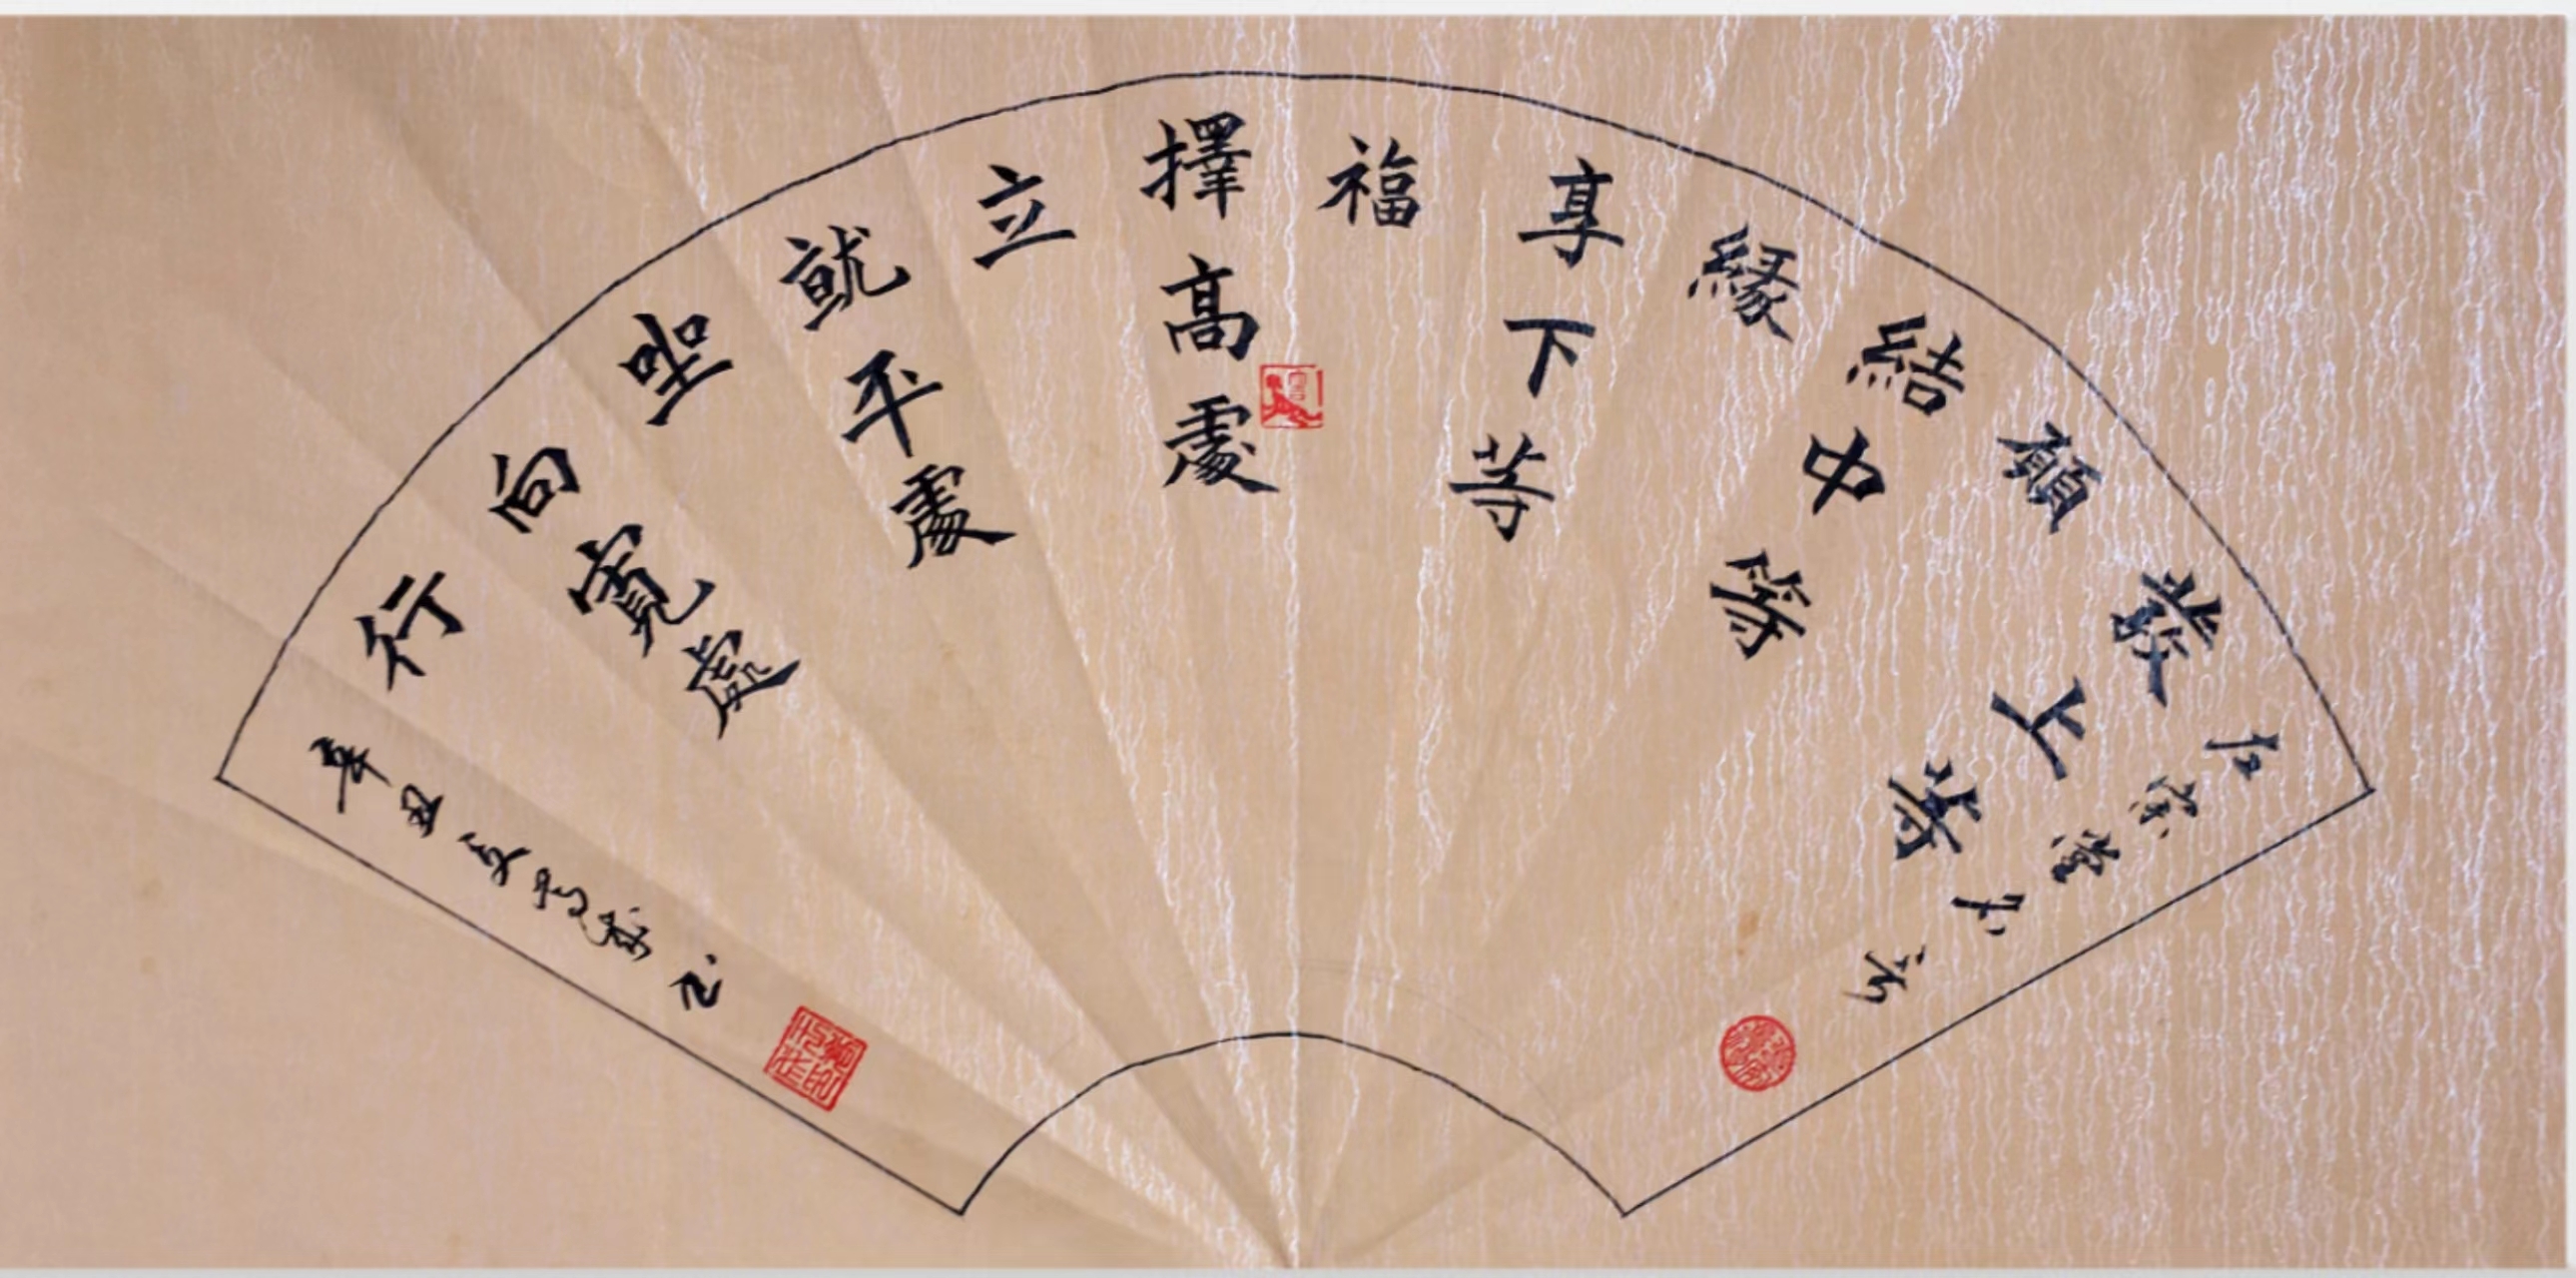 左宗棠
發上等
願
結中等
緣
享下等
福
擇高處
立
就平處
坐
向寬處
行
辛丑夏
书